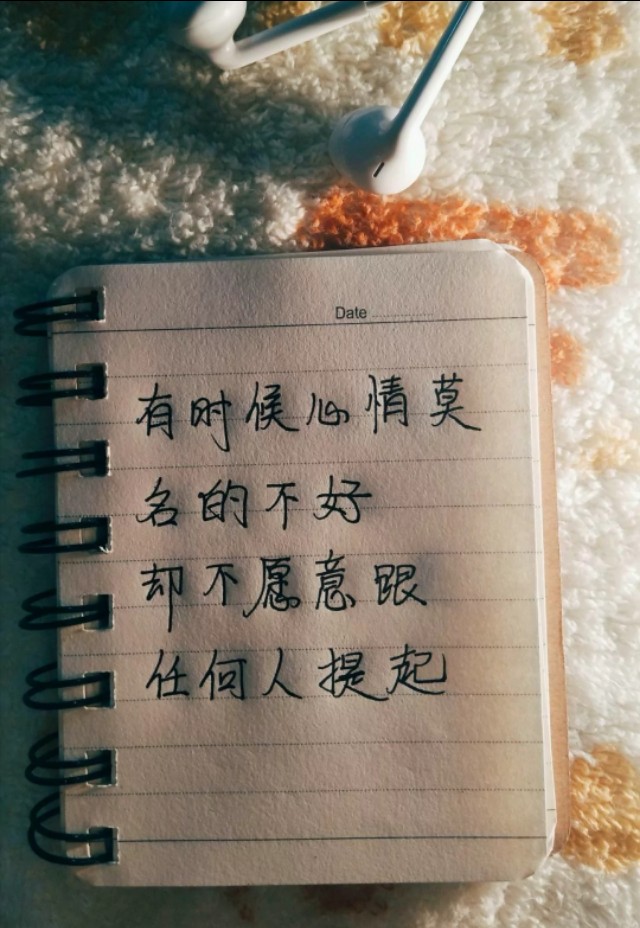 Date
有时候心情莫
名的不好
却不愿意跟
任何人提起